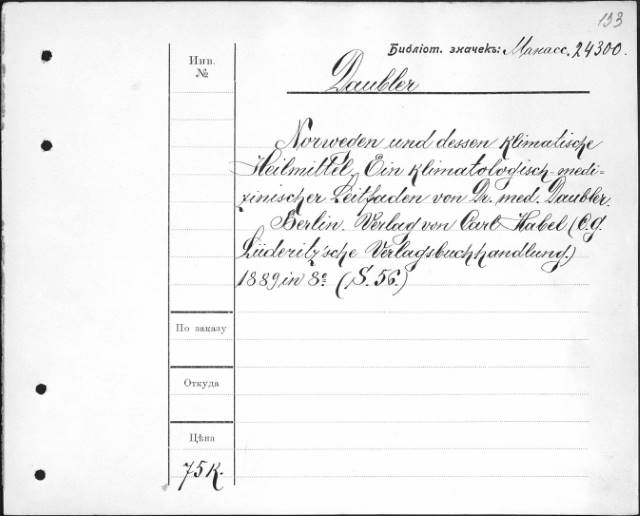 193
Библіот. значекъ: Манасс. 24300.
Инв.
№
Daubler
Norweden und dessen klimatische
Heilmittel. Ein klimatologisch-medi-
zinischer Leitfaden von Dr. med. Daubler.
Berlin. Verlag von Carl Habel (C.G.
Lüderitz'sche Verlagsbuchhandlung.)
1889, in 8º (S. 56.)
По заказу
Откуда
Цѣна
75 к.